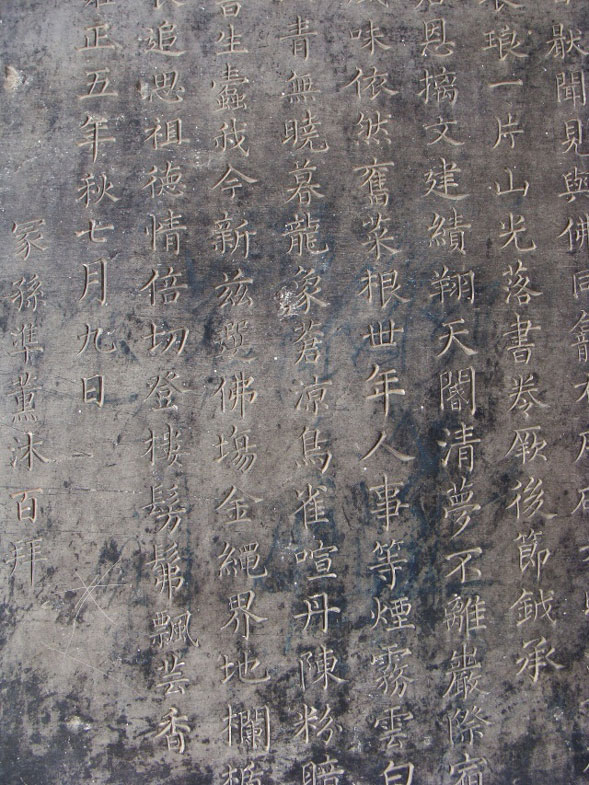 猒聞見與佛同龕
琅一片山光落書帙厥後節鉞承
恩摛文建績翔天閽清夢不離巖際宿
味依然舊菜根世年人事等煙霧雲白
青無曉暮龍象蒼凉鳥雀喧丹陳粉暗
生蠹我今新兹選佛場金繩界地欄楯
追思祖德情倍切登樓髣髴飄芸香
雍正五年秋七月九日
冢孫準薰沐百拜